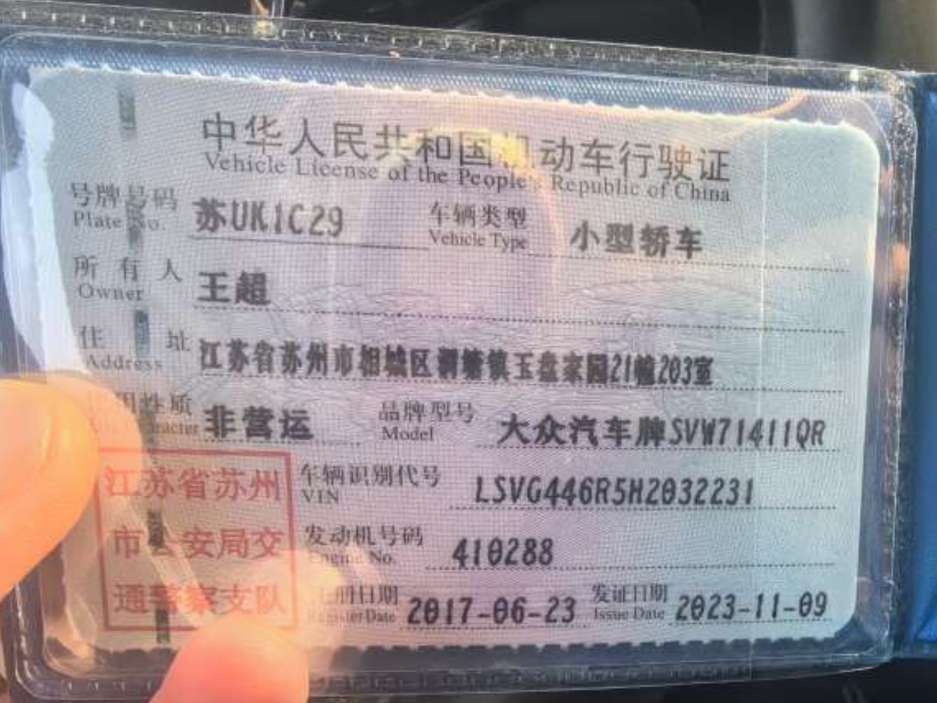 中华人民共和国机动车行驶证
Vehicle License of the People's Republic of China
号牌号码 苏UK1C29 车辆类型 小型轿车
Plate No. Vehicle Type
所有人 王超
Owner
住址 江苏省苏州市相城区澜塘镇玉盘家园21幢203室
Address
用性质 非营运 品牌型号 大众汽车牌SVW71411QR
Character Model
江苏省苏州 车辆识别代号 LSVG446R5H2032231
VIN
市公安局交 发动机号码 410288
Engine No.
通警察支队 注册日期 2017-06-23 发证日期 2023-11-09
Register Date Issue Date